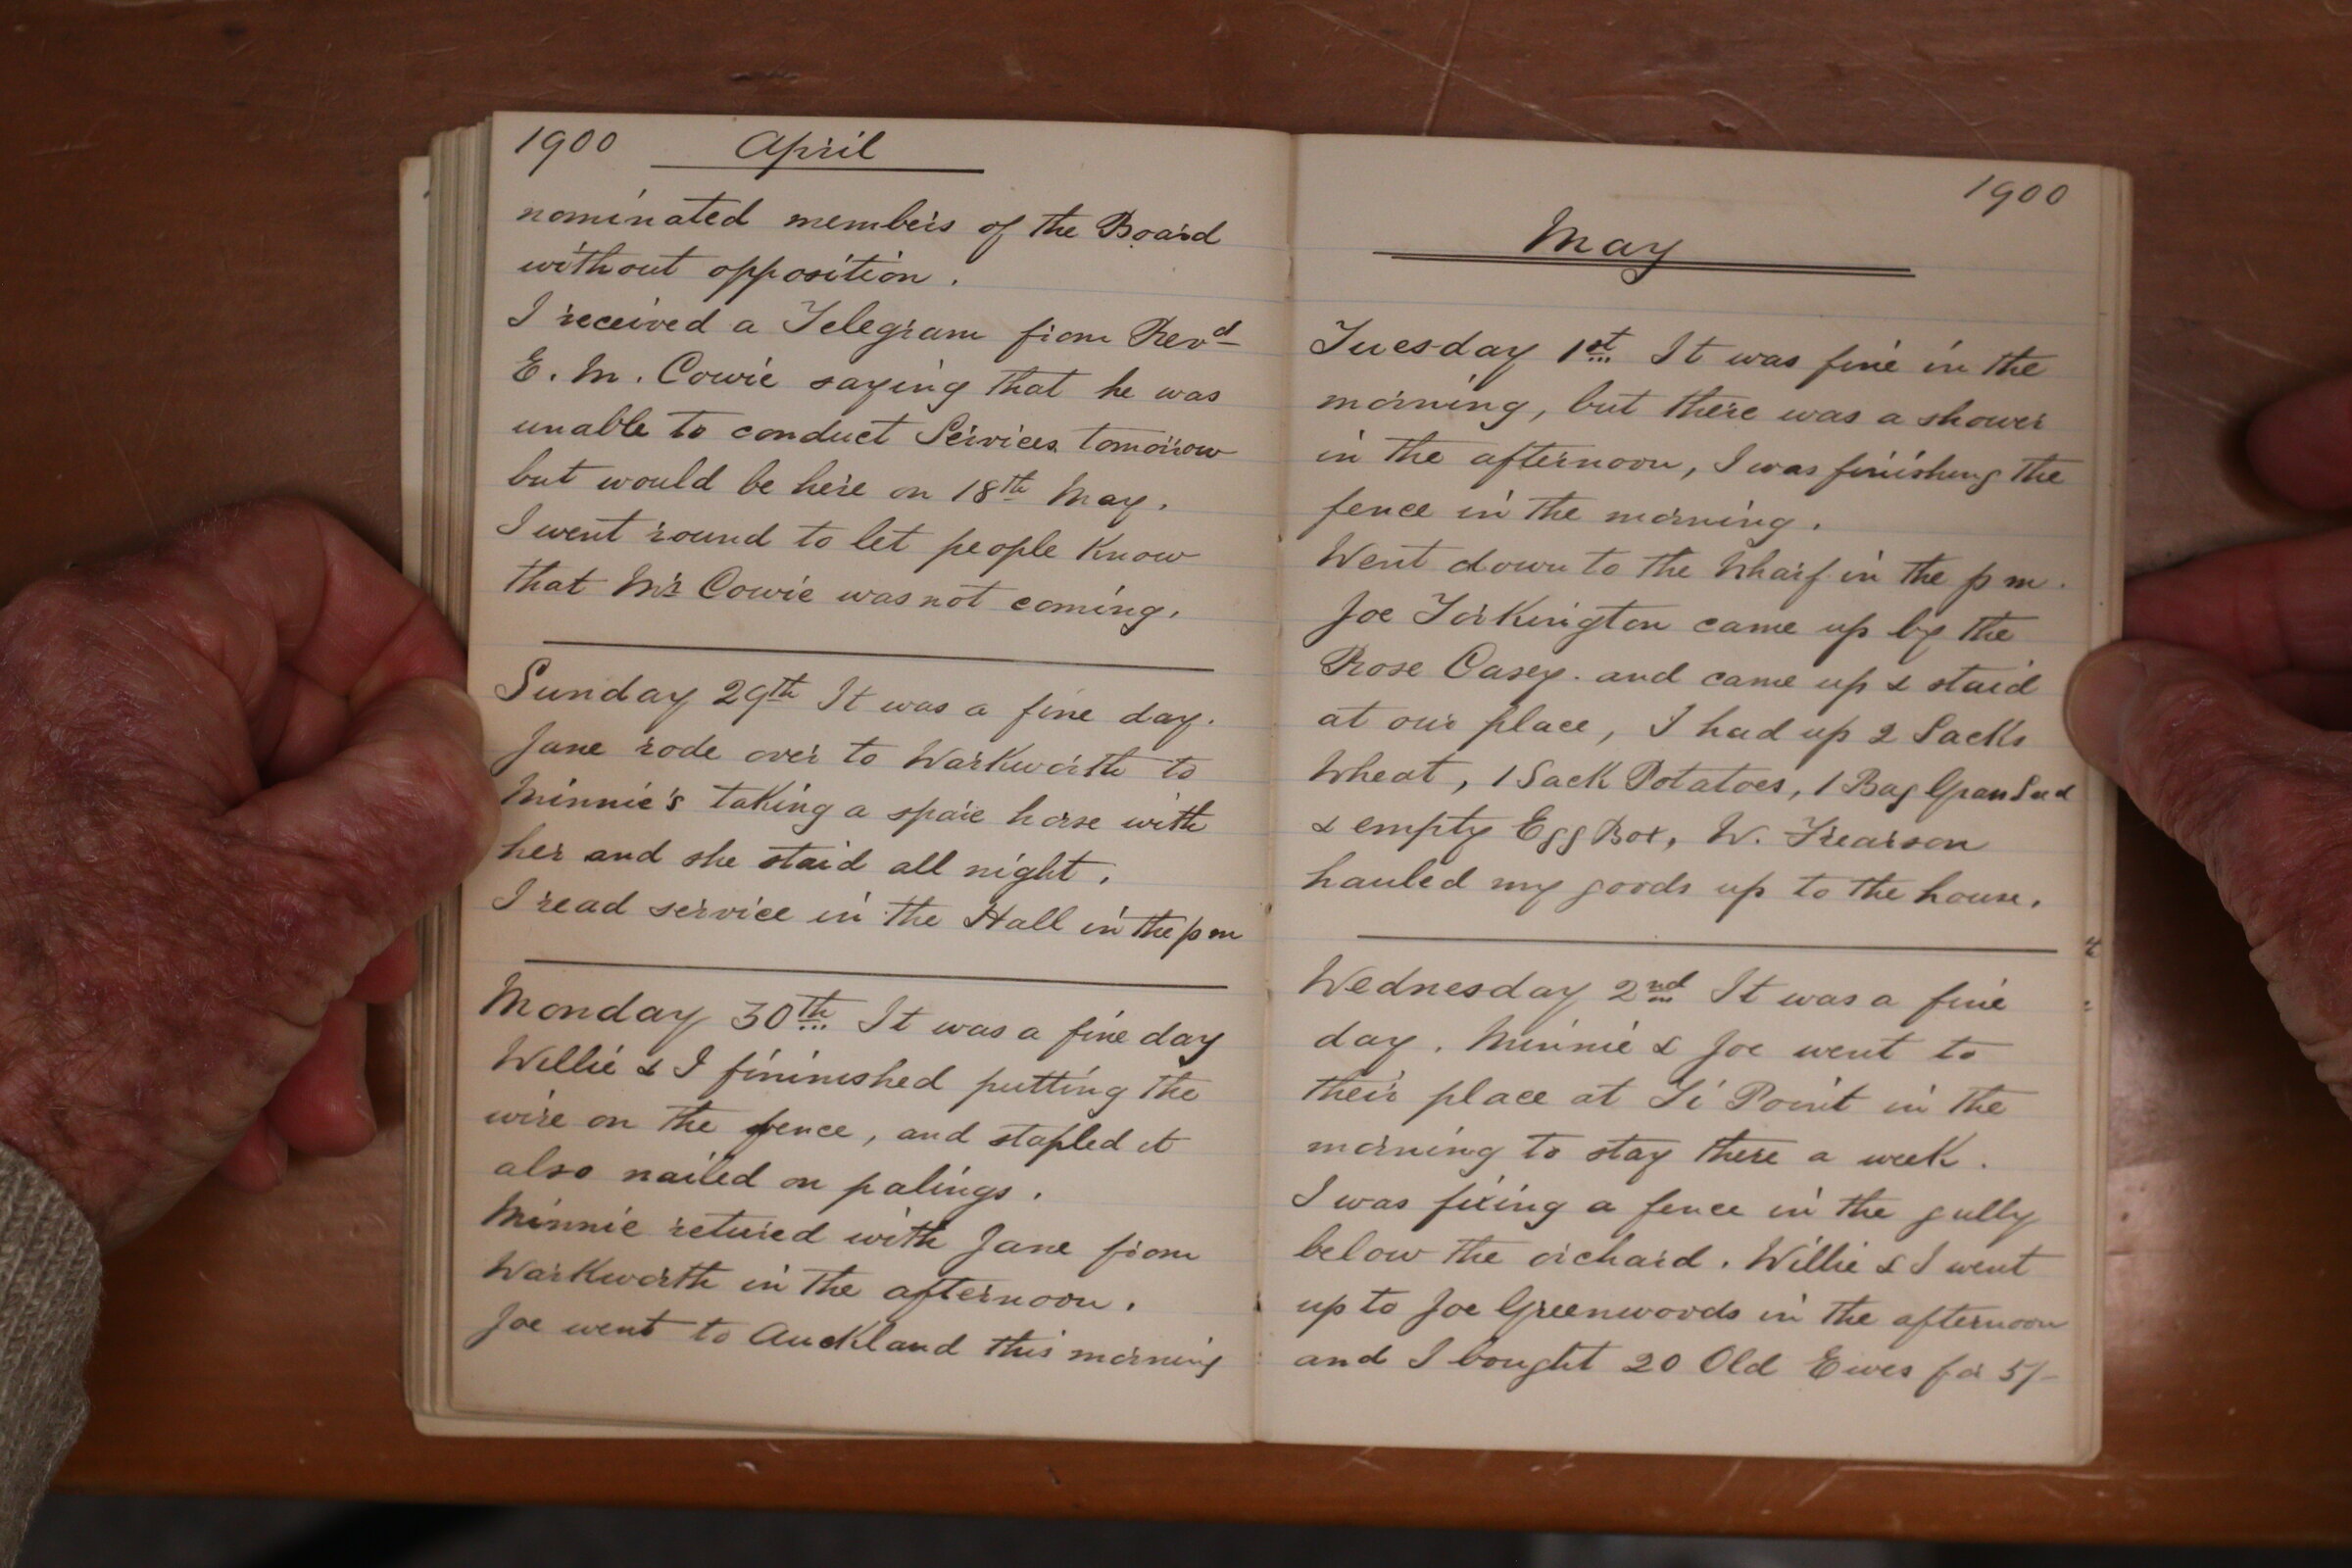 1900 April
nominated members of the Board
without opposition.
I received a Telegram from Revd
E. M. Cowie saying that he was
unable to conduct Services tomorrow
but would be here on 18th May.
I went round to let people know
that Mr Cowie was not coming.
Sunday 29th It was a fine day.
Jane rode over to Warkworth to
Minnie's taking a spare horse with
her and she staid all night.
I read service in the Hall in the pm
Monday 30th It was a fine day
Willie & I fininished putting the
wire on the fence, and stapled it
also nailed on palings.
Minnie retured with Jane from
Warkworth in the afternoon.
Joe went to Auckland this morning
1900
May
Tuesday 1st It was fine in the
morning, but there was a shower
in the afternoon, I was finishing the
fence in the morning.
Went down to the Wharf in the pm.
Joe Torkington came up by the
Rose Casey. and came up & staid
at our place, I had up 2 Sacks
Wheat, 1 Sack Potatoes, 1 Bag Grass Seed
& empty Egg Box, W. Frearson
hauled my goods up to the house.
Wednesday 2nd It was a fine
day. Minnie & Joe went to
their place at Ti Point in the
morning to stay there a week.
I was fixing a fence in the gully
below the orchard. Willie & I went
up to Joe Greenwoods in the afternoon
and I bought 20 Old Ewes for 5/-